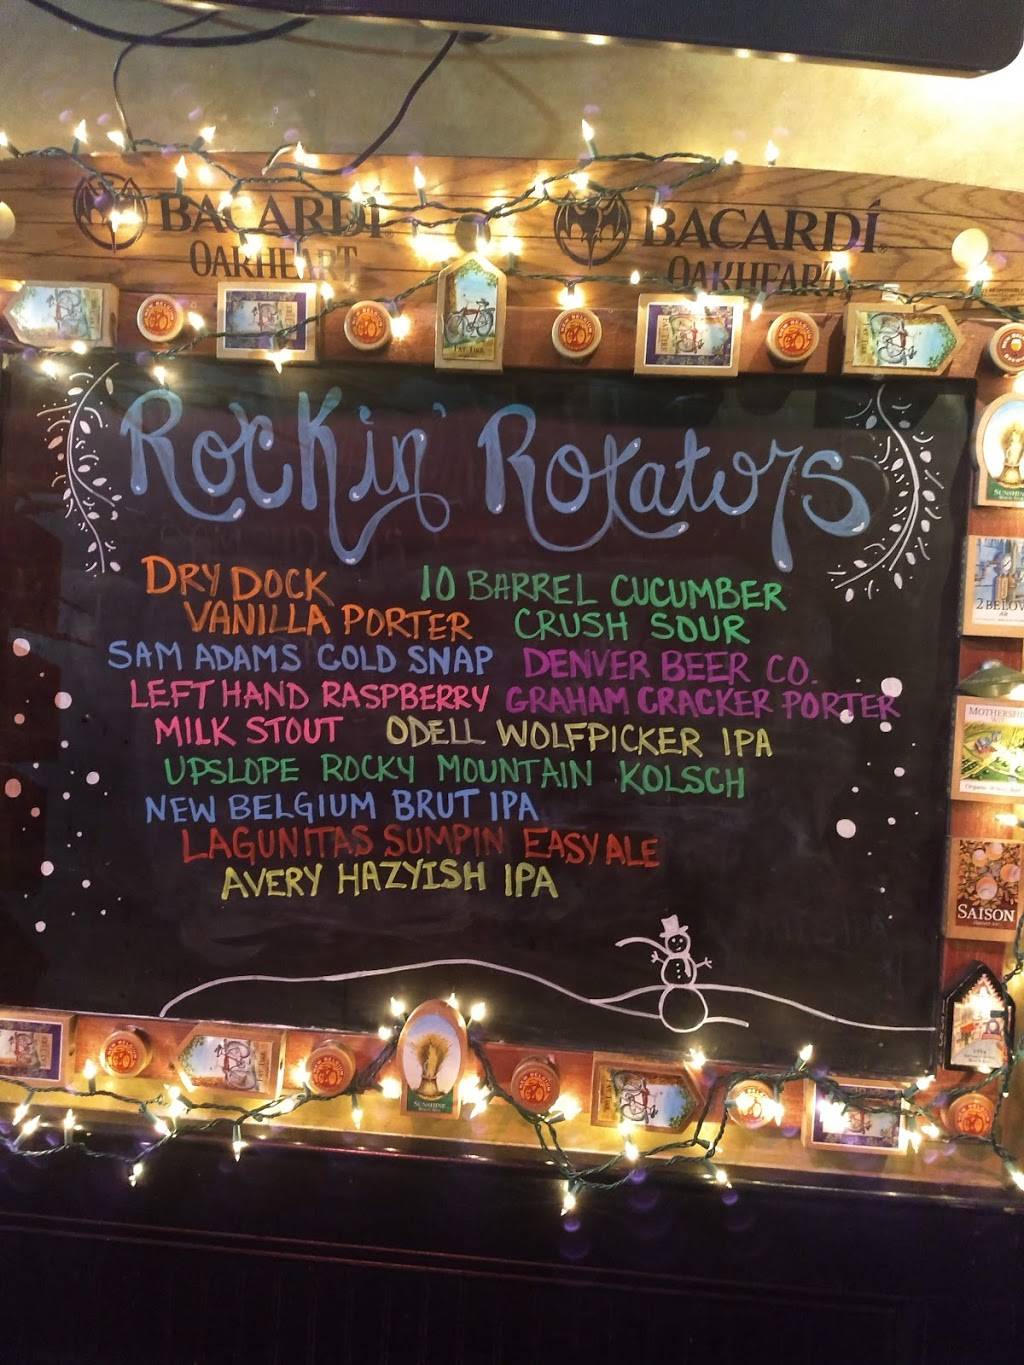 BACARDÍ
OAKHEART
BACARDÍ
OAKHEART
FAT TIRE
Rockin' Rotators
DRY DOCK
VANILLA PORTER
10 BARREL CUCUMBER
CRUSH SOUR
SAM ADAMS COLD SNAP
DENVER BEER CO.
GRAHAM CRACKER PORTER
LEFT HAND RASPBERRY
MILK STOUT
ODELL WOLFPICKER IPA
UPSLOPE ROCKY MOUNTAIN KOLSCH
NEW BELGIUM BRUT IPA
LAGUNITAS SUMPIN EASY ALE
AVERY HAZYISH IPA
SUNSHINE
2 BELOW
MOTHERSHIP
SAISON
SUNSHINE